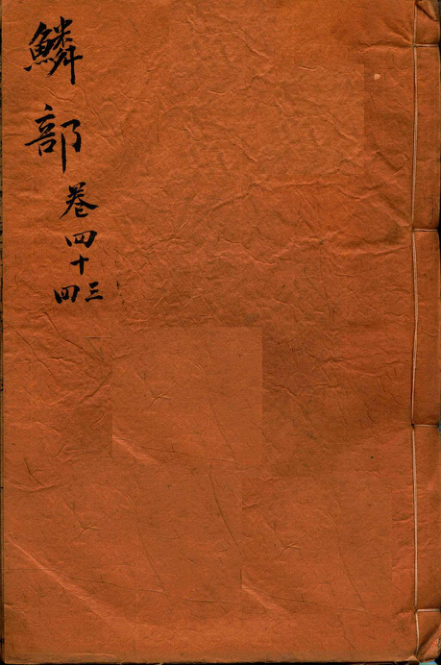 鱗部
卷四十三
四